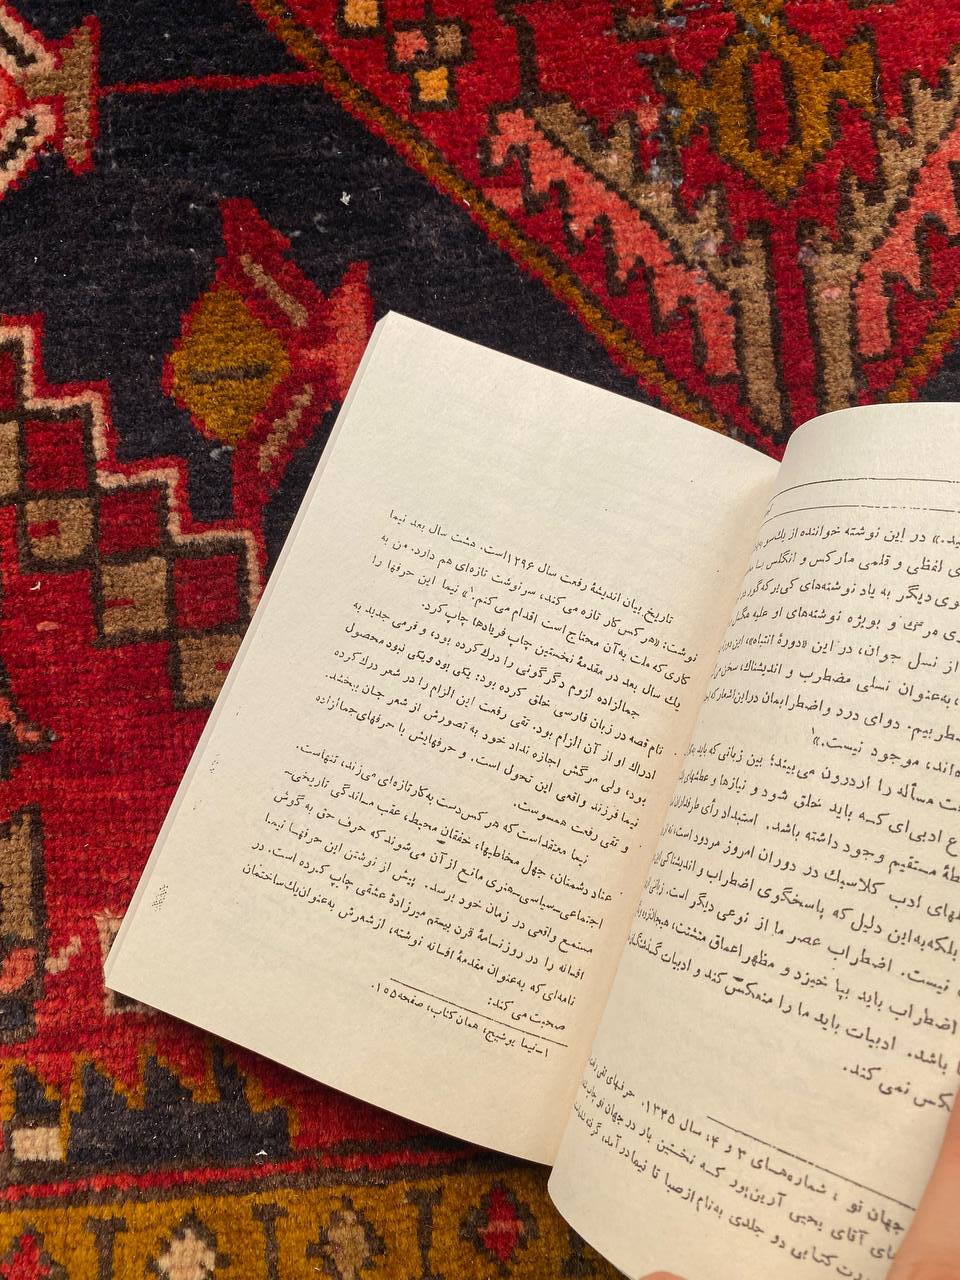 ید.» در این نوشته خواننده از یك‌سو
ی لفظی و قلمی مارکس و انگلس
وی دیگر به یاد نوشته‌های کی‌یرکه‌گور
ی مرگ و بویژه نوشته‌های او علیه
از نسل جوان، در این «دورهٔ انتباه»، این
، به‌عنوان نسلی مضطرب و اندیشناك، سخن
ضطربیم. دوای درد و اضطرابمان در این اشعار که
ه‌اند، موجود نیست.»۱
ت مسأله را از درون می‌بیند: بین زبانی که باید
ع ادبی‌ای کسه باید خلق شود و نیازها و عطشهای
طهٔ مستقیم وجود داشته باشد. استبداد رأی طرفداران
طهای ادب کلاسیك در دوران امروز مردود است، نه
بلکه به این دلیل که پاسخگوی اضطراب و اندیشناکی
نیست. اضطراب عصر ما از نوعی دیگر است. زبانی
اضطراب باید بپا خیزد و مظهر اعماق متشتت، هیجانزده
ا باشد. ادبیات باید ما را منعکس کند و ادبیات گذشتگان
کس نمی کند.
جهان نو ، شماره‌هسای ۳ و ۴، سال ۱۳۴۵. حرفهای تقی
ای آقای یحیی آرین‌پور کسه نخستین بار در جهان نو چاپ
ت کتابی دو جلدی به‌نام از صبا تا نیما در آمد، گرفته
تاریخ بیان اندیشهٔ رفعت سال ۱۲۹۶ است. هشت سال بعد نیما
نوشت: «هر کس کار تازه می‌کند، سرنوشت تازه‌ای هم دارد. من به
کاری که ملت به‌آن محتاج است اقدام می‌کنم.۱» نیما این حرفها را
یك سال بعد در مقدمهٔ نخستین چاپ فریادها چاپ کرد.
جمالزاده لزوم دگرگونی را درك کرده بود، و فرمی جدید به
نام قصه در زبان فارسی خلق کرده بود: یکی بود و یکی نبود محصول
ادراك او از آن الزام بود. تقی رفعت این الزام را در شعر درك کرده
بود، ولی مرگش اجازه نداد خود به تصورش از شعر جان ببخشد.
نیما فرزند واقعی این تحول است. و حرفهایش با حرفهای جمالزاده
و تقی رفعت همسوست.
نیما معتقد است که هر کس دست به کار تازه‌ای می‌زند، تنهاست.
عناد دشمنان، جهل مخاطبها، خفقان محیط، عقب مساندگی تاریخی-
اجتماعی-سیاسی-هنری مانع از آن می‌شوند که حرف حق به گوش
مستمع واقعی در زمان خود برسد. پیش از نوشتن این حرفها نیما
افسانه را در روزنامهٔ قرن بیستم میرزادهٔ عشقی چاپ کرده است. در
نامه‌ای که به‌عنوان مقدمهٔ افسانه نوشته، از شعرش به‌عنوان یك ساختمان
صحبت می کند:
۱-نیما یوشیج، همان کتاب، صفحه ۱۰۵.